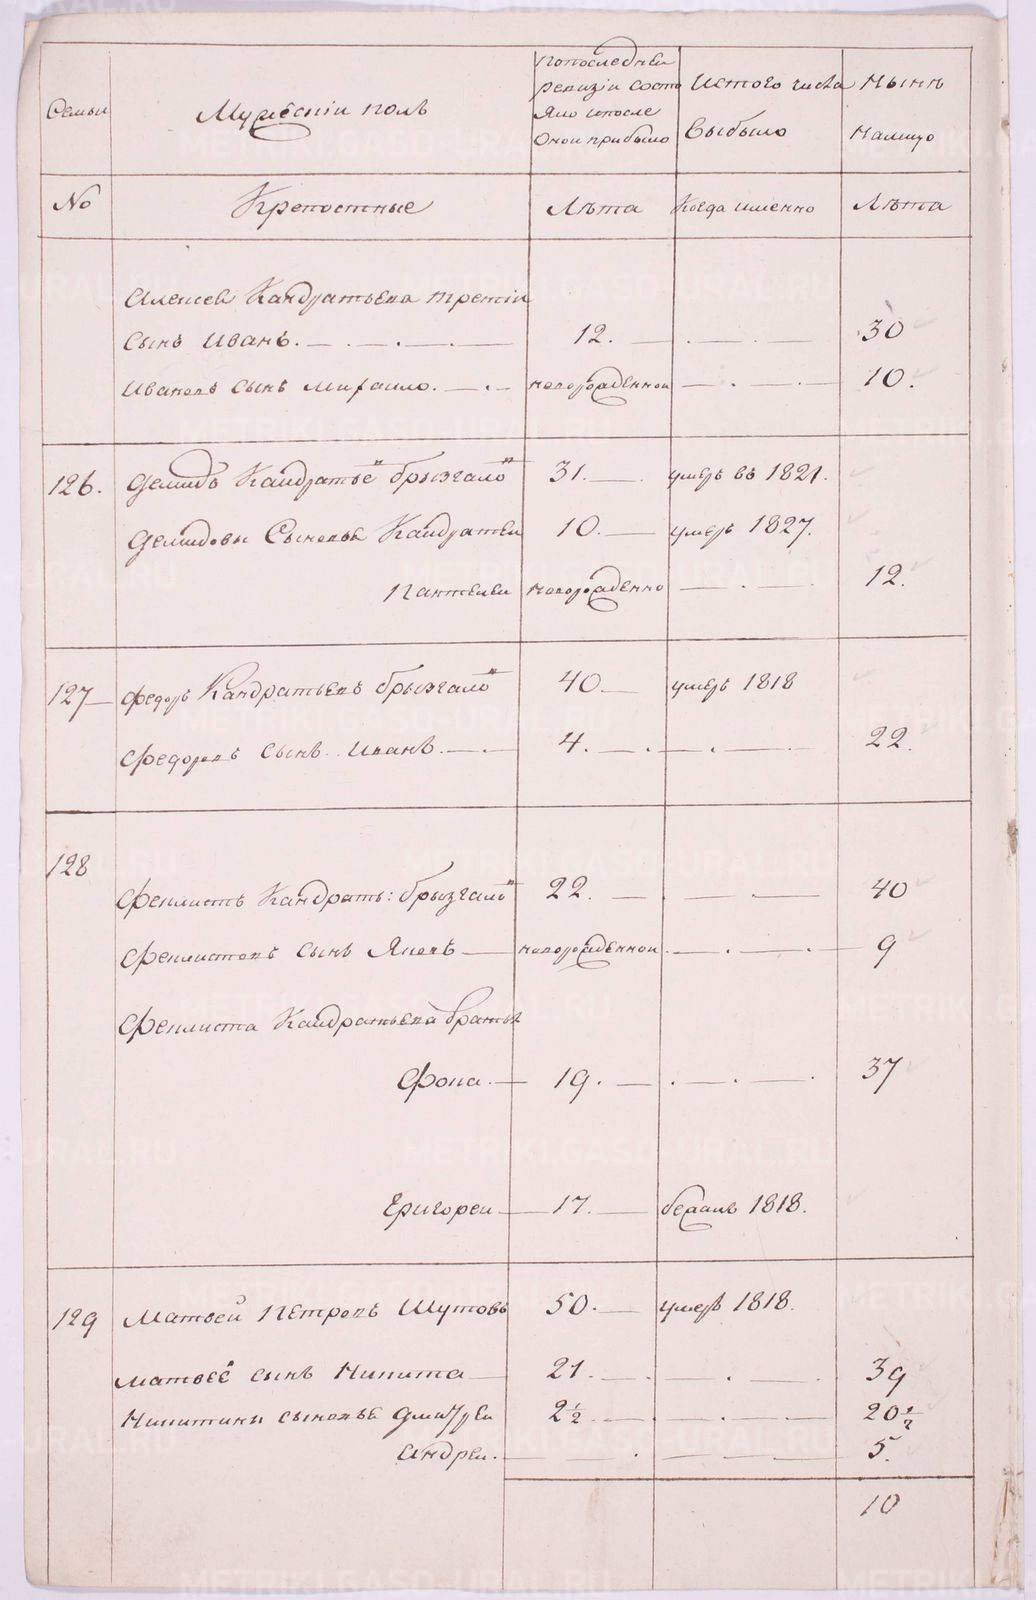 Семьи
Мужескiй полъ
Попоследней
ревизiи состо
Яло ипосле
Оной прибыло
Истого числа
Выбыло
Нынѣ
Налицо
No
Крепостные
Лѣта
Когда имѣнно
Лѣта
Алексея Кандратьева третiй
Сынъ Иванъ. 12. 30
Ивановъ сынъ Михаило. новорожденной 10.
126. Демидъ Кандратье" Брызгало" 31. умеръ въ 1821.
Демидовы Сыновья Кандратей 10. умеръ 1827.
Пантелей новорожденно 12.
127 Федоръ Кандратьевъ Брызгало" 40 умеръ 1818
Федоровъ сынъ Иванъ. 4. 22.
128
Феклистъ Кандрать: Брызгало" 22. 40
Феклистовъ сынъ Яковъ новорожденной 9
Феклиста Кандратьева братья
Фока 19. 37
Григорей 17. бежалъ 1818.
129 Матвей Петровъ Шутовъ 50. умеръ 1818.
Матвее" сынъ Никита 21. 39
Никитины сыновья Дмитрей 2 1/2 20 1/2
Андрей. 5.
10
METRIKI.GASO-URAL.RU